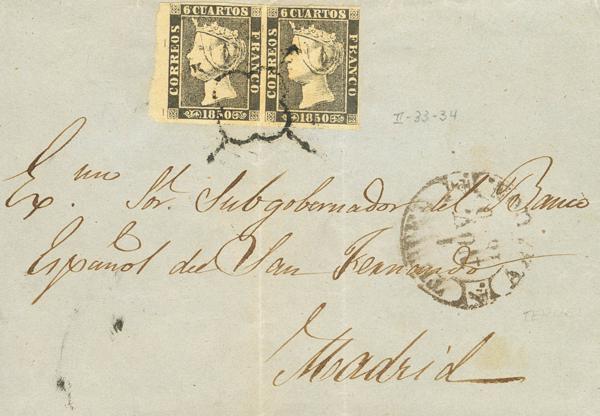 6 CUARTOS 6 CUARTOS
CORREOS FRANCO CORREOS FRANCO
1850 1850
II-33-34
Ex.mo Sor. Subgobernador del Banco
Español de San Fernando
Madrid